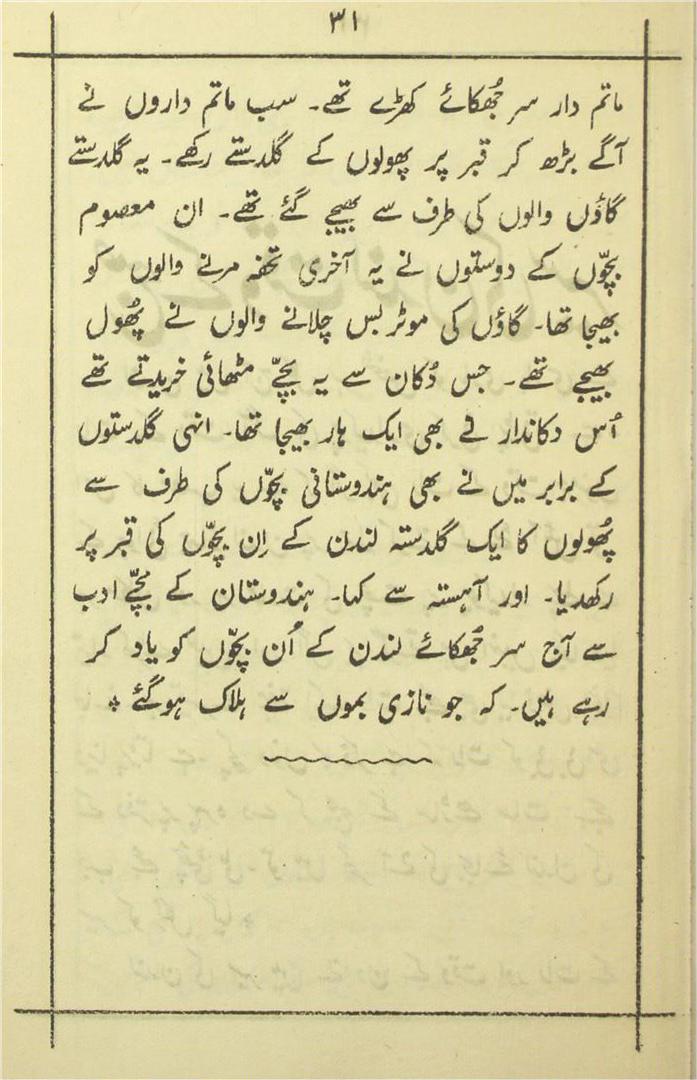 ۳۱
ماتم دار سر جُھکائے کھڑے تھے۔ سب ماتم داروں نے
آگے بڑھ کر قبر پر پھولوں کے گلدستے رکھے۔ یہ گلدستے
گاؤں والوں کی طرف سے بھیجے گئے تھے۔ ان معصوم
بچّوں کے دوستوں نے یہ آخری تحفہ مرنے والوں کو
بھیجا تھا۔ گاؤں کی موٹر بس چلانے والوں نے پھُول
بھیجے تھے۔ جس دُکان سے یہ بچّے مٹھائی خریدتے تھے
اُس دکاندار نے بھی ایک ہار بھیجا تھا۔ انہی گلدستوں
کے برابر میں نے بھی ہندوستانی بچّوں کی طرف سے
پھُولوں کا ایک گلدستہ لندن کے اِن بچّوں کی قبر پر
رکھدیا۔ اور آہستہ سے کہا۔ ہندوستان کے بچّے ادب
سے آج سر جُھکائے لندن کے اُن بچّوں کو یاد کر
رہے ہیں۔ کہ جو نازی بموں سے ہلاک ہوگئے *